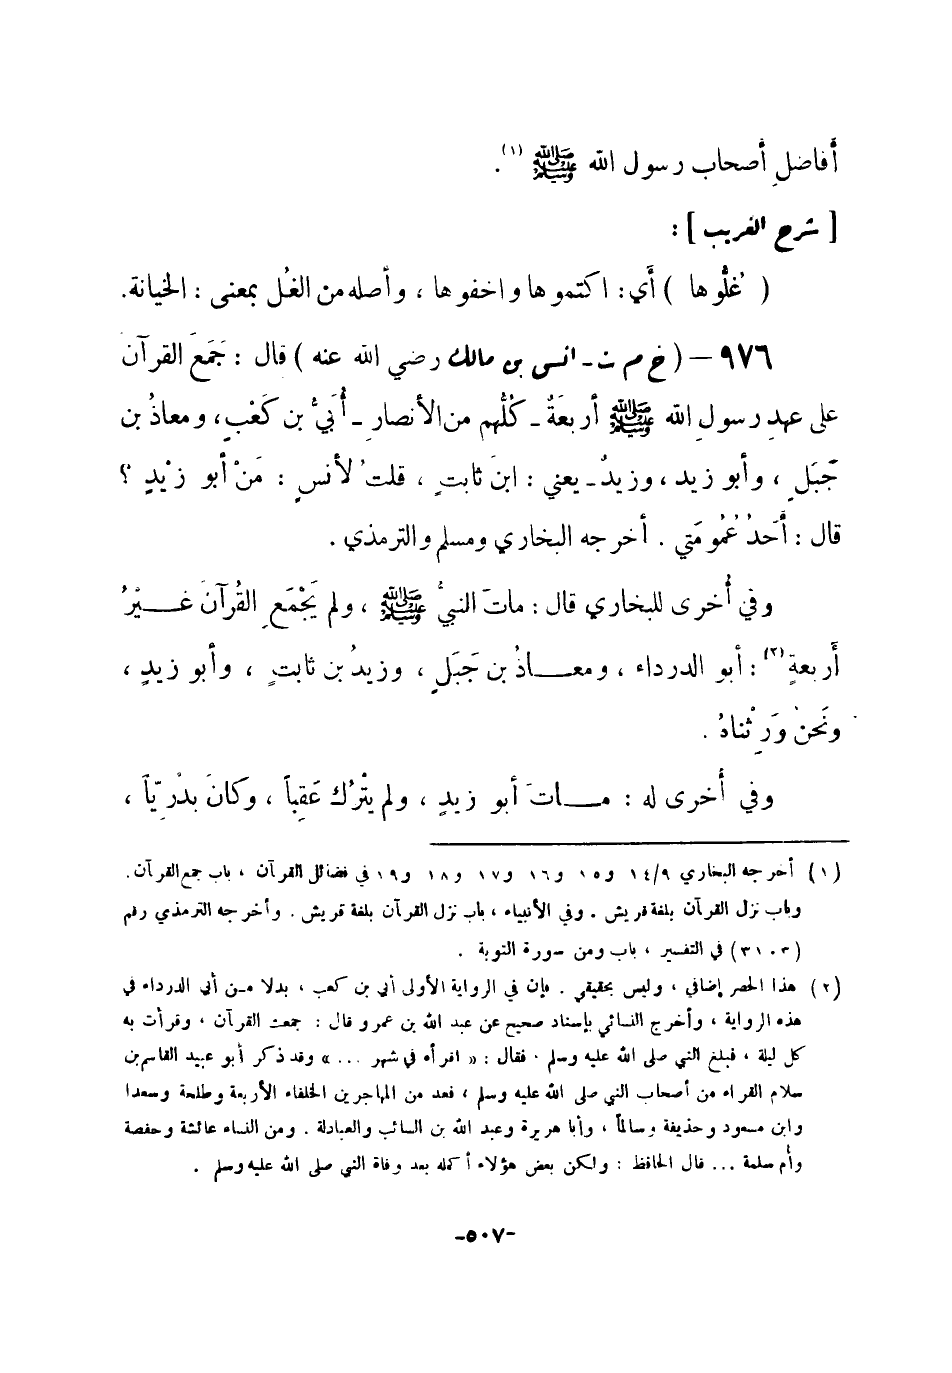 أَفاضلِ أصحاب رسول الله ﷺ (١).
[ شرح الغريب ] :
( غُلُّوها ) أَي : اكتموها واخفوها ، وأصله من الغُل بمعنى : الخيانة.
٩٧٦ – ( خ م ت - انس بن مالك رضي الله عنه ) قال : جَمَعَ القرآن
على عهدِ رسولِ الله ﷺ أربعَةٌ ـ كُلُّهم من الأنصارِ ـ أُبَيُّ بن كَعْبٍ ، ومعاذُ بن
جَبَلٍ ، وأبو زيد ، وزيدٌ ـ يعني : ابنَ ثابتٍ ، قلتُ لأنسٍ : مَنْ أبو زيْدٍ ؟
قال : أَحَدُ عُمُومَتي . أخرجه البخاري ومسلم والترمذي .
وفي أُخرى للبخاري قال : ماتَ النبيُّ ﷺ ، ولم يَجْمَعِ القُرآنَ غَــيْرُ
أَربعةٍ (٢) : أبو الدرداء ، ومعــاذُ بن جَبَلٍ ، وزيدُ بن ثابتٍ ، وأبو زيدٍ ،
ونَحنُ وَرِثْناهُ .
وفي أُخرى له : مــاتَ أبو زيدٍ ، ولم يتْرُك عَقِباً ، وكانَ بدْرِيّاً ،
(١) أخرجه البخاري ١٤/٩ و١٥ و١٦ و١٧ و١٨ و١٩ في فضائل القرآن ، باب جمع القرآن .
وباب نزل القرآن بلغة قريش . وفي الأنبياء ، باب نزل القرآن بلغة قريش . وأخرجه الترمذي رقم
(٣١٠٣) في التفسير ، باب ومن سورة التوبة .
(٢) هذا الحصر إضافي ، وليس بحقيقي . فإن في الرواية الأولى أبي بن كعب ، بدلا مـن أبي الدرداء في
هذه الرواية ، وأخرج النسائي بإسناد صحيح عن عبد الله بن عمرو قال : جمعت القرآن ، وقرأت به
كل ليلة ، فبلغ النبي صلى الله عليه وسلم . فقال : « اقرأه في شهر ... » وقد ذكر أبو عبيد القاسم بن
سلام القراء من أصحاب النبي صلى الله عليه وسلم ، فعد من المهاجرين الخلفاء الأربعة وطلحة وسعدا
وابن مسعود وحذيفة وسالماً ، وأبا هريرة وعبد الله بن السائب والعبادلة . ومن النساء عائشة وحفصة
وأم سلمة ... قال الحافظ : ولكن بعض هؤلاء أكمله بعد وفاة النبي صلى الله عليه وسلم .
-٥٠٧-